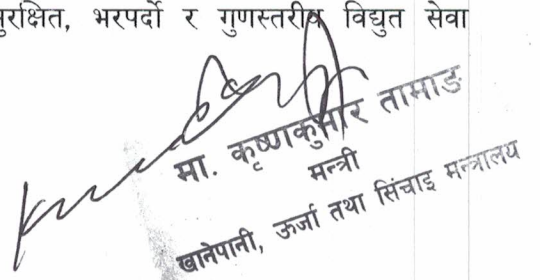 सुरक्षित, भरपर्दो र गुणस्तरीय विद्युत सेवा
मा. कृष्णकुमार तामाङ
मन्त्री
खानेपानी, ऊर्जा तथा सिंचाइ मन्त्रालय